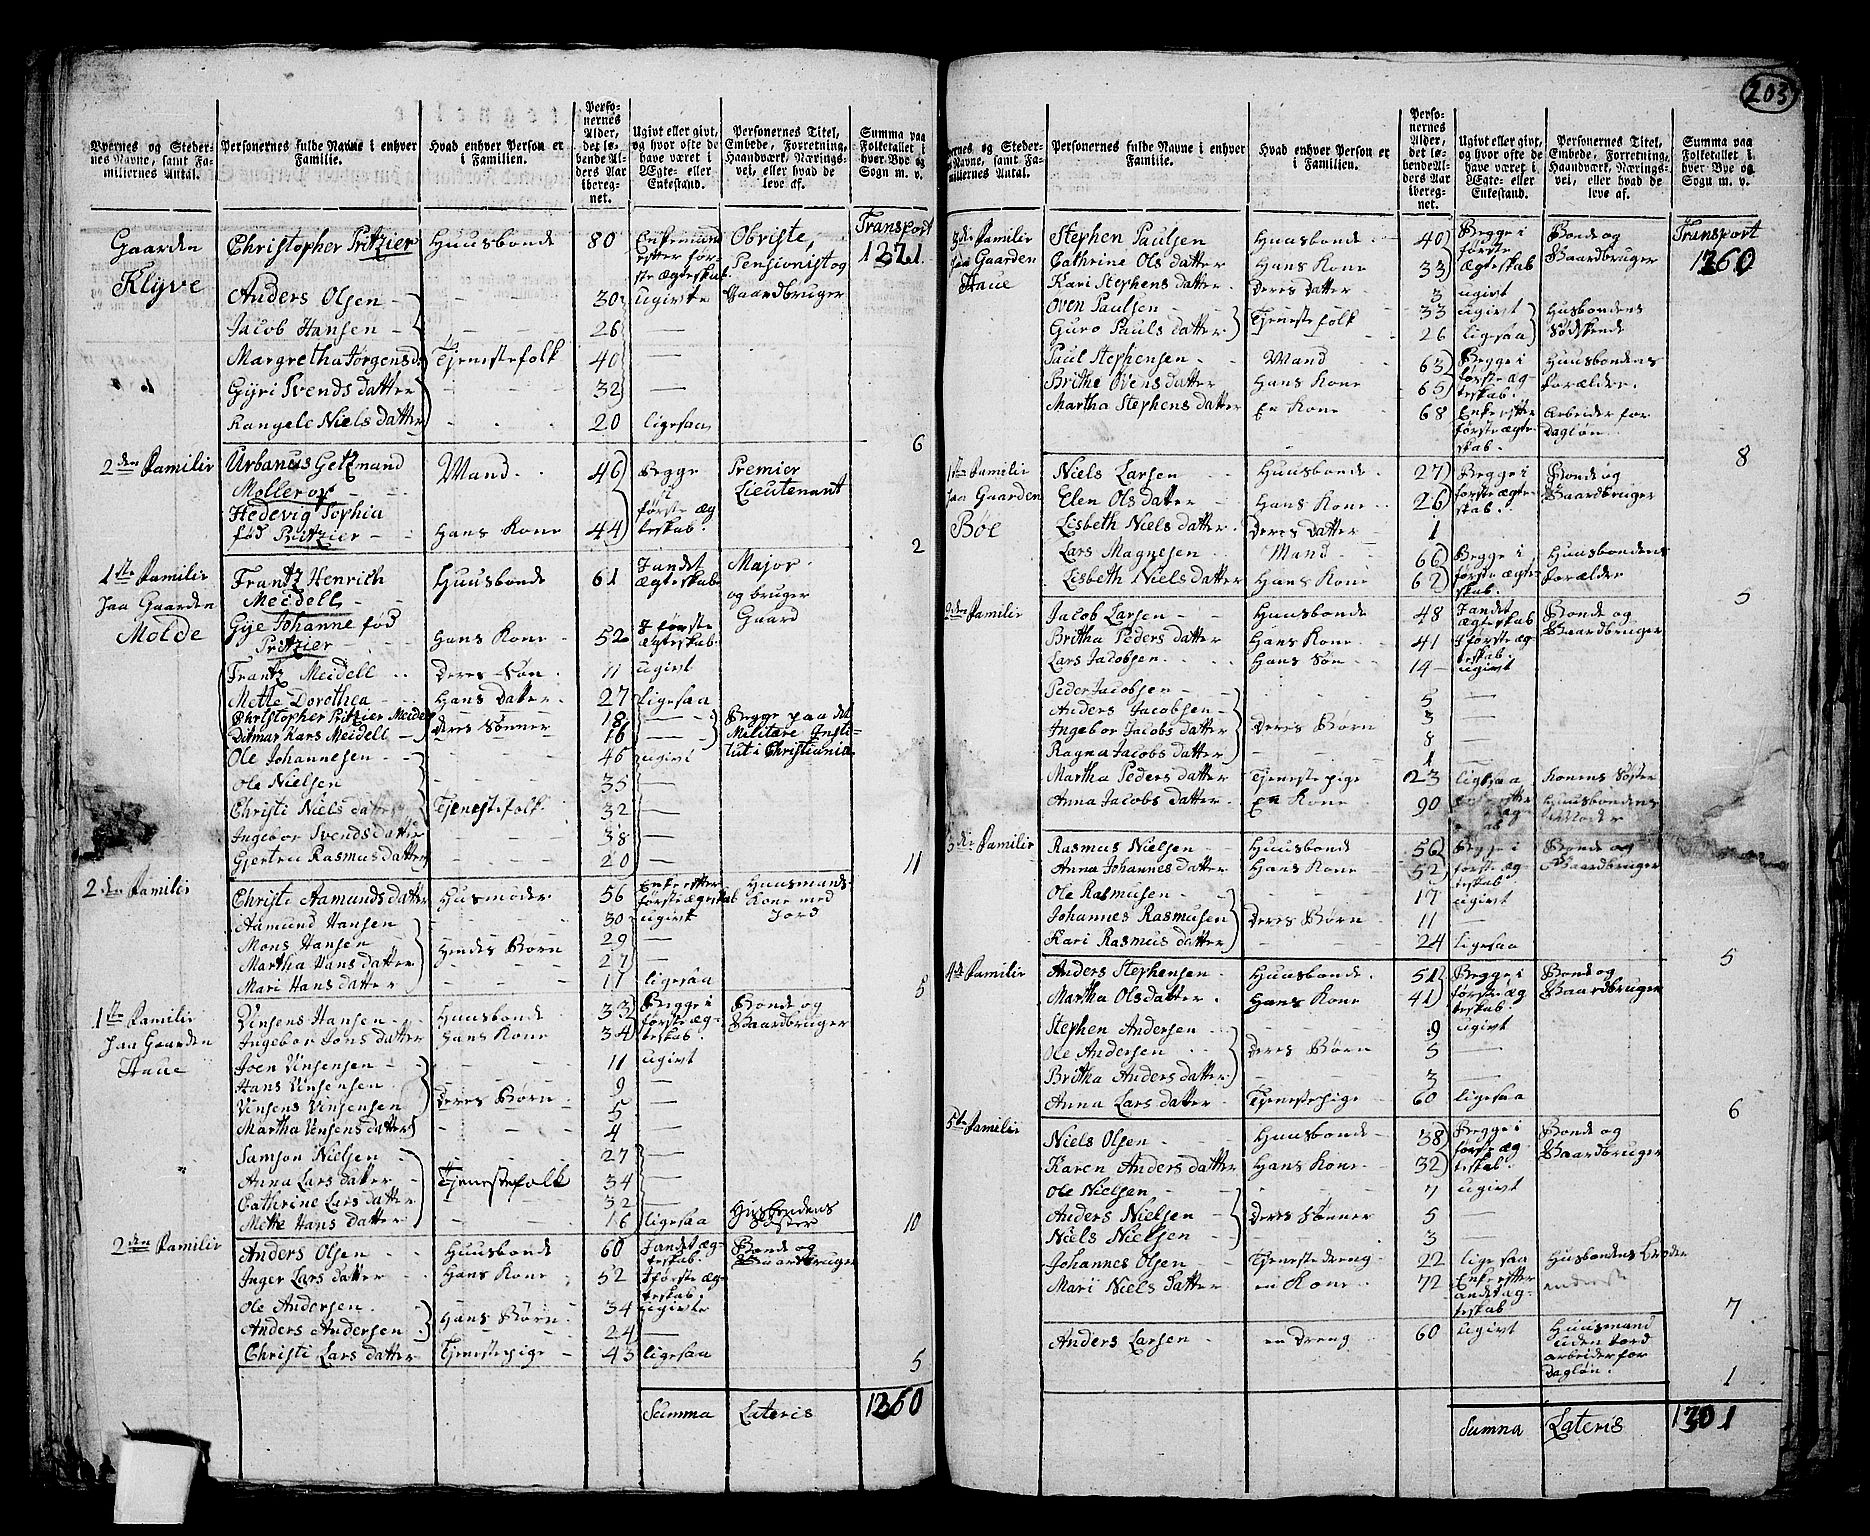 203
Byernes og Stedernes Navne, samt Familiernes Antal. | Personernes fulde Navne i enhver Familie. | Hvad enhver Person er i Familien. | Personernes Alder, det løbende Alders Aar iberegnet. | Ugivt eller givt, og hvor ofte de have været i Ægte- eller Enkestand. | Personernes Titel, Embede, Forretning, Haandværk, Næringsvei, eller hvad de leve af. | Summa paa Folketallet i hver Bye og Sogn m. v.
Transport 1321.
Gaarden Klyve | Christopher Pritzier | Huusbonde | 80 | Enkemand efter første ægteskab | Obriste, Pensionist og Gaardbruger
Anders Olsen | 30 | ugivte
Jacob Hansen | 26 | —
Margretha Jørgensd | Tjenestefolk | 40 | —
Gÿri Svends datter | 32 | —
Rangele Niels datter | 20 | ligesaa
6
2den Familie | Urbanus Getzmand Møllerop | Mand | 46 | Begge i første ægteskab | Premier Lieutenant
Hedevig Sophia fød Pritzier | Hans Kone | 44
2
1ste Familie paa Gaarden Molde | Frantz Henrich Meidell | Huusbonde | 61 | I andet ægteskab | Major og bruger Gaard
Gÿe Johanne fød Pritzier | Hans Kone | 52 | I første ægteskab
Frantz Meidell | Deres Søn | 11 | ugivt
Mette Dorothea | Hans Datter | 27 | ligesaa
Christopher Pritzier Meidell | Deres Sønner | 18 | — | Begge paa det Militære Institut i Christiania
Ditmar Kars Meidell | 16 | —
Ole Johannesen | 46 | ugivt
Ole Nielsen | 35 | —
Christi Niels datter | Tjenestefolk | 32 | —
Ingebor Svends datter | 38 | —
Gjertru Rasmus datter | 20 | —
11
2den Familie | Christi Aamunds datter | Husmoder | 56 | Enke efter første ægteskab | Huusmands Kone med Jord
Aamund Hansen | 30 | ugivt
Mons Hansen | Hendes Børn | 29 | —
Martha Hans datter | 27 | —
Mari Hans datter | 17 | ligesaa
5
1ste Familie paa Gaarden Haue | Vinsens Hansen | Huusbonde | 33 | Begge i første ægteskab | Bonde og Gaardbruger
Ingebor Jons datter | Hans Kone | 34
Joen Vinsensen | 11 | ugivt
Hans Vinsensen | 9 | —
Vinsens Vinsensen | Deres Børn | 5 | —
Martha Vinsens datter | 4 | —
Samson Nielsen | 27 | —
Anna Lars datter | Tjenestefolk | 34 | —
Cathrine Lars datter | 32 | —
Mette Hans datter | 16 | ligesaa | Husbondens Søster
10
2den Familie | Anders Olsen | Huusbonde | 60 | I andet ægteskab | Bonde og Gaardbruger
Inger Lars datter | Hans Kone | 52 | I første ægteskab
Ole Andersen | Hans Børn | 34 | ugivte
Anders Andersen | 24 | —
Christi Lars datter | Tjenestepige | 43 | ligesaa
5
Summa Lateris 1260
Byernes og Stedernes Navne, samt Familiernes Antal. | Personernes fulde Navne i enhver Familie. | Hvad enhver Person er i Familien. | Personernes Alder, det løbende Alders Aar iberegnet. | Ugivt eller givt, og hvor ofte de have været i Ægte- eller Enkestand. | Personernes Titel, Embede, Forretning, Haandværk, Næringsvei, eller hvad de leve af. | Summa paa Folketallet i hver Bye og Sogn m. v.
Transport 1260
3die Familie paa Gaarden Haue | Stephen Paulsen | Huusbonde | 40 | Begge i første ægteskab | Bonde og Gaardbruger
Cathrine Ols datter | Hans Kone | 33
Kari Stephens datter | Deres datter | 3 | ugivt
Oven Paulsen | Tjenestefolk | 33 | ugivt | Husbondens Sødskende
Guro Pauls datter | 26 | ligesaa
Paul Stephensen | Mand | 63 | Begge i første ægteskab | Huusbondens forældre
Brithe Ovens datter | Hans Kone | 65
Martha Stephens datter | En Kone | 68 | Enke efter første ægteskab | Arbeider for Dagløn
8
1ste Familie paa Gaarden Bøe | Niels Larsen | Huusbonde | 27 | Begge i første ægteskab | Bonde og Gaardbruger
Elen Ols datter | Hans Kone | 26
Lisbeth Niels datter | Deres Datter | 1
Lars Magnesen | Mand | 66 | Begge i første ægteskab | Huusbondens forældre
Lisbeth Niels datter | Hans Kone | 62
5
2den Familie | Jacob Larsen | Huusbonde | 48 | I andet ægteskab | Bonde og Gaardbruger
Britha Peders datter | Hans Kone | 41 | I første ægteskab
Lars Jacobsen | Hans Søn | 14 | ugivt
Peder Jacobsen | 5 | —
Anders Jacobsen | 3 | —
Ingebor Jacobs datter | Deres Børn | 8
Ragna Jacobs datter | 1 | —
Martha Peders datter | Tjeneste pige | 23 | ligesaa | Konens Søster
Anna Jacobs datter | En Kone | 90 | Enke efter | Huusbondens Moder
3die Familie | Rasmus Nielsen | Huusbonde | 56 | Begge i første ægteskab | Bonde og Gaardbruger
Anna Johannes datter | Hans Kone | 52
Ole Rasmusen | 17 | ugivt
Johannes Rasmusen | Deres Børn | 11 | —
Kari Rasmus datter | 24 | ligesaa
5
4de Familie | Anders Stephensen | Huusbonde | 51 | Begge i første ægteskab | Bonde og Gaardbruger
Martha Ols datter | Hans Kone | 41
Stephen Andersen | 9 | ugivt
Ole Andersen | Deres Børn | 5 | —
Britha Anders datter | 3 | —
Anna Lars datter | Tjenestepige | 60 | ligesaa
6
5te Familie | Niels Olsen | Huusbonde | 38 | Begge i første ægteskab | Bonde og Gaardbruger
Karen Anders datter | Hans Kone | 32
Ole Nielsen | 7 | ugivt
Anders Nielsen | Deres Sønner | 5 | —
Niels Nielsen | 3
Johannes Olsen | Tjeneste dreng | 22 | ligesaa | Husbondens broder
Mari Niels datter | en Kone | 72 | Enke efter andet ægteskab
7
Anders Larsen | en Dreng | 60 | ugivt | Huusmand uden Jord arbeider for Dagløn
1
Summa Lateris 1301